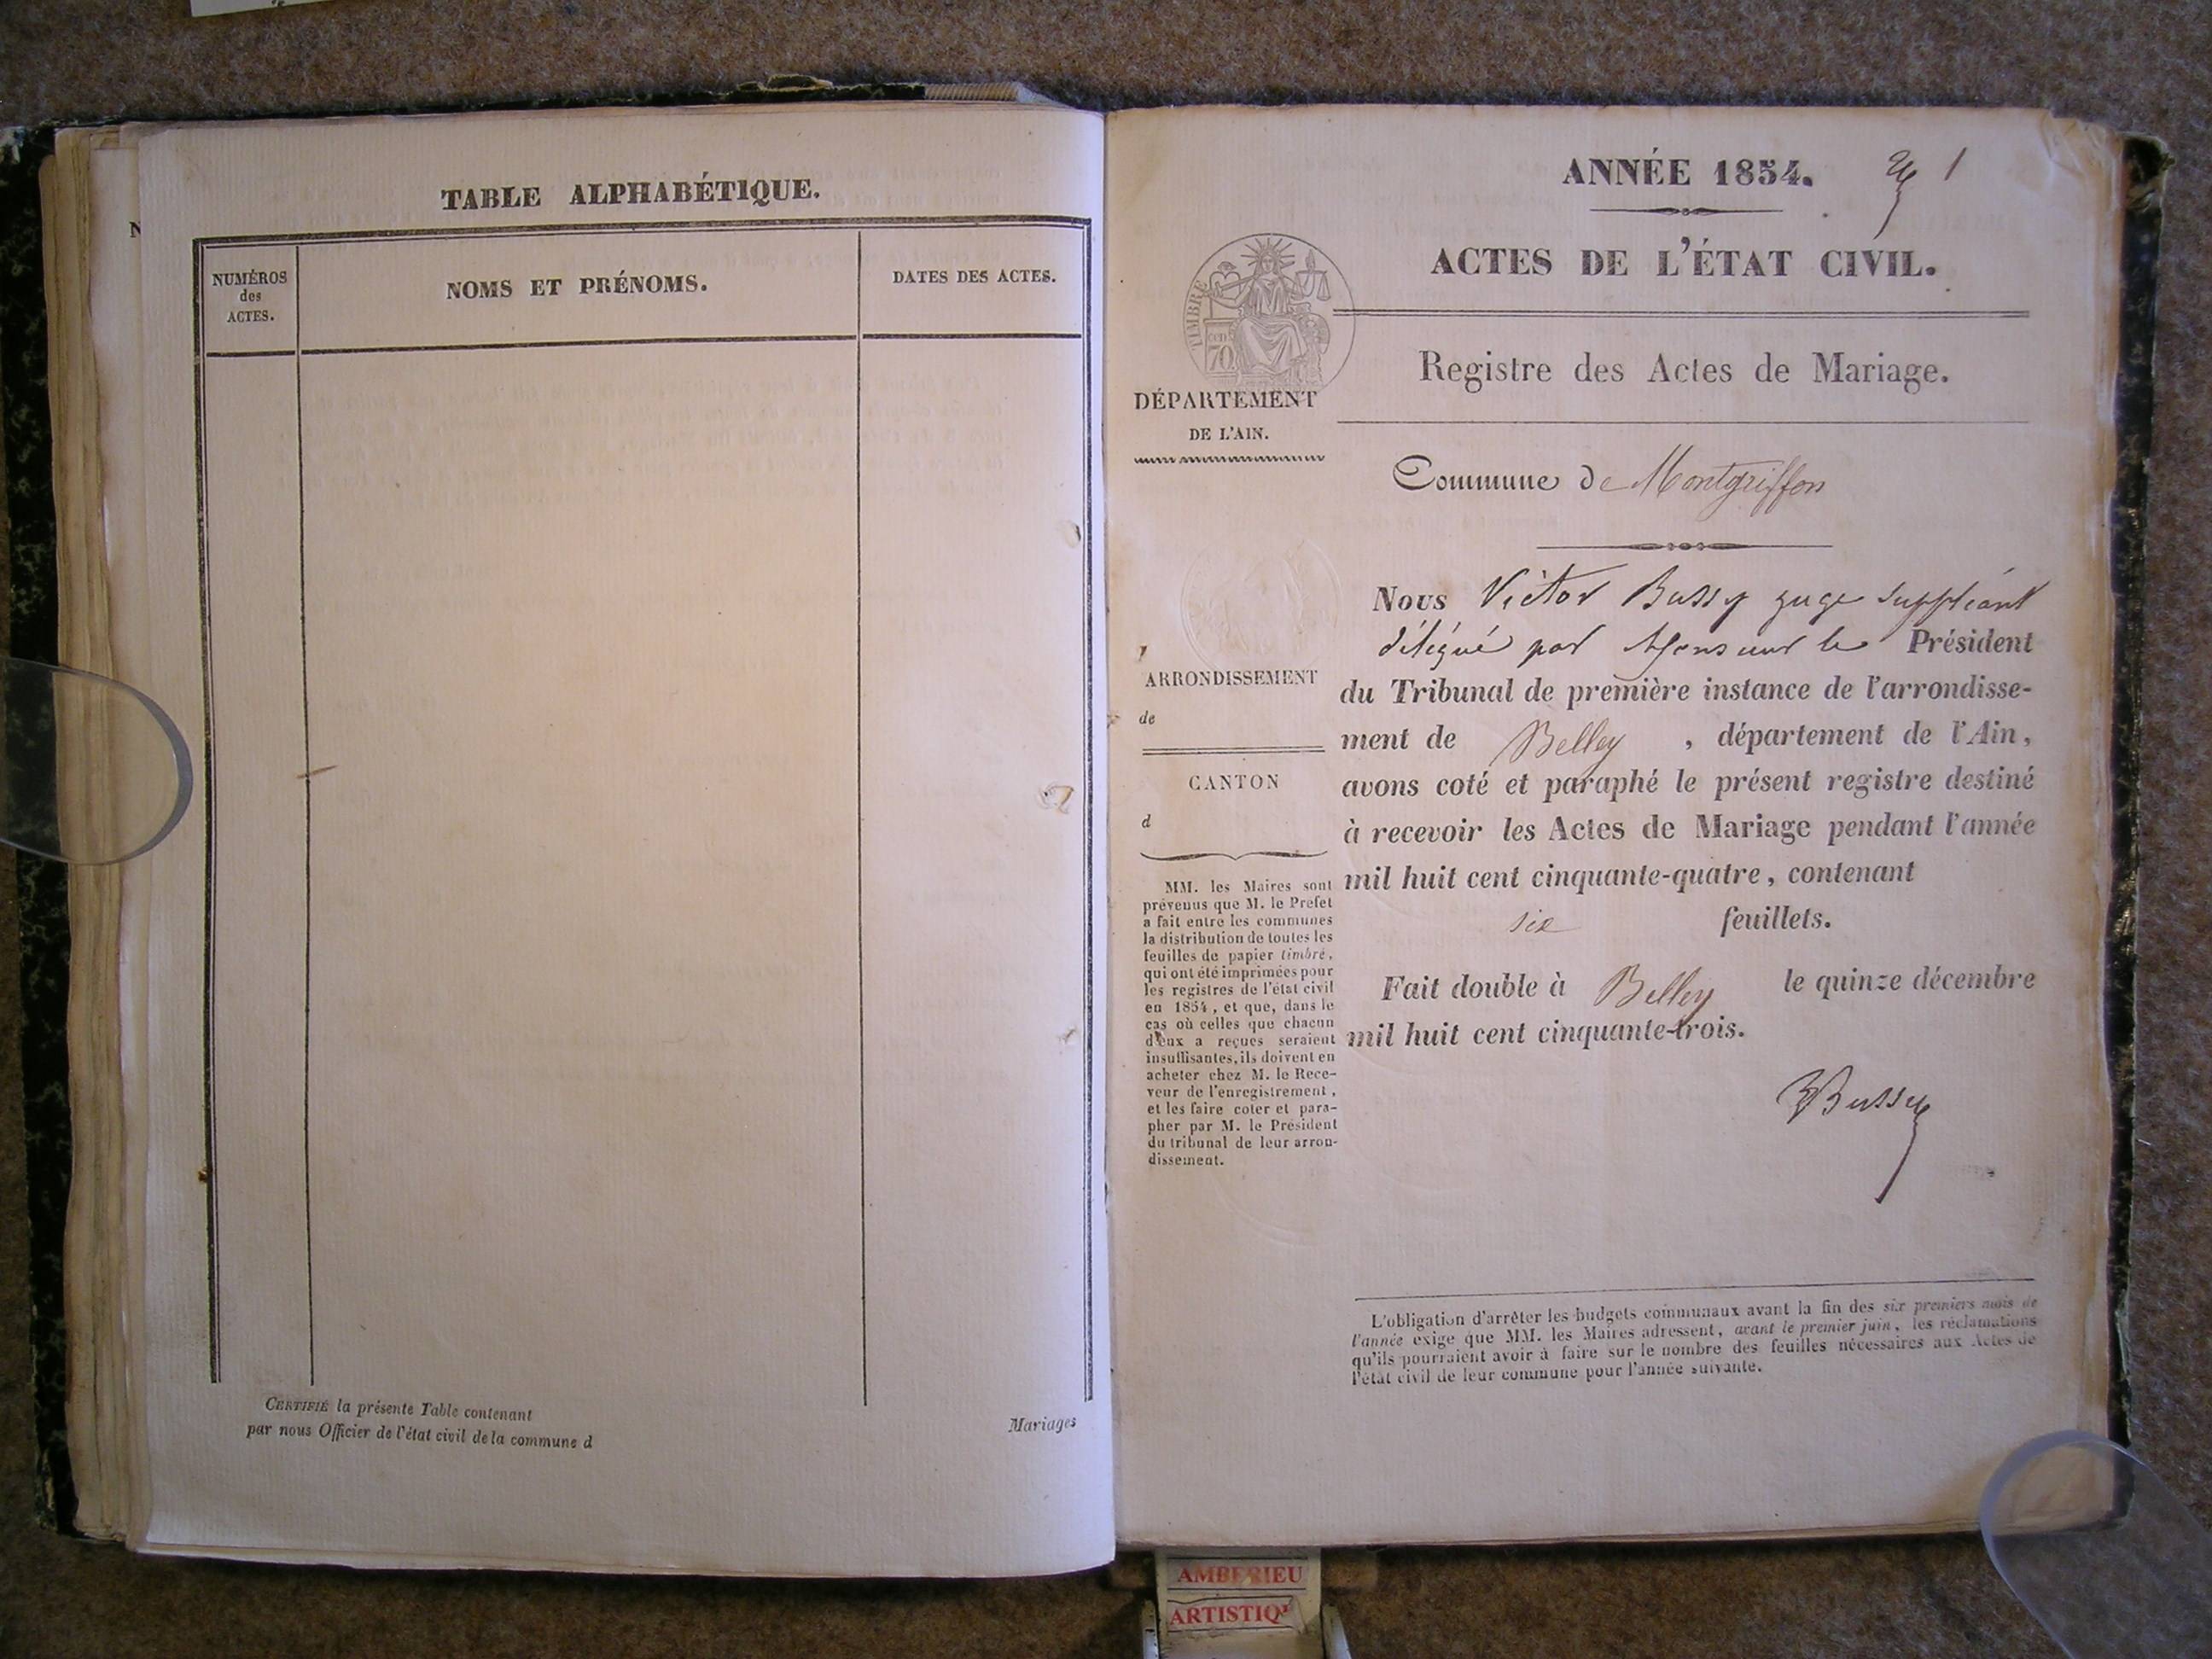 TABLE ALPHABÉTIQUE.
NUMÉROS
des
ACTES.
NOMS ET PRÉNOMS.
DATES DES ACTES.
CERTIFIÉ la présente Table contenant
par nous Officier de l'état civil de la commune d
Mariages
ANNÉE 1854.
1
ACTES DE L'ÉTAT CIVIL.
TIMBRE
70
Registre des Actes de Mariage.
DÉPARTEMENT
DE L'AIN.
Commune de Montgriffon
Nous Victor Bussy juge suppléant
délégué par Monsieur le Président
du Tribunal de première instance de l'arrondisse-
ment de Belley , département de l'Ain,
avons coté et paraphé le présent registre destiné
à recevoir les Actes de Mariage pendant l'année
mil huit cent cinquante-quatre, contenant
six feuillets.
Fait double à Belley le quinze décembre
mil huit cent cinquante-trois.
Bussy
ARRONDISSEMENT
de
CANTON
d
MM. les Maires sont
prévenus que M. le Prefet
a fait entre les communes
la distribution de toutes les
feuilles de papier timbré,
qui ont été imprimées pour
les registres de l'état civil
en 1854, et que, dans le
cas où celles que chacun
d'eux a reçues seraient
insuffisantes, ils doivent en
acheter chez M. le Rece-
veur de l'enregistrement,
et les faire coter et para-
pher par M. le Président
du tribunal de leur arron-
dissement.
L'obligation d'arrêter les budgets communaux avant la fin des six premiers mois de
l'année exige que MM. les Maires adressent, avant le premier juin, les réclamations
qu'ils pourraient avoir à faire sur le nombre des feuilles nécessaires aux Actes de
l'état civil de leur commune pour l'année suivante.
AMBERIEU
ARTISTIQ